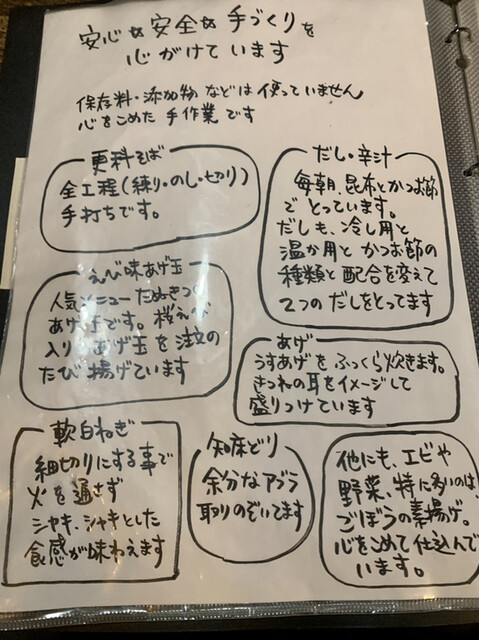 安心な安全な手づくりを
心がけています
保存料・添加物などは使っていません
心をこめた手作業です
更科そば
全工程(練り・のし・切り)
手打ちです。
だし・辛汁
毎朝、昆布とかつお節
でとっています。
だしも、冷し用と
温か用とかつお節の
種類と配合を変えて
2つのだしをとってます
えび味あげ玉
人気メニューたぬきつ
あげ玉です。桜えび
入りあげ玉を注文の
たび揚げています
あげ
うすあげをふっくら炊きます。
きつねの耳をイメージして
盛りつけています
軟白ねぎ
細切りにする事で
火を通さず
シャキ、シャキとした
食感が味わえます
知床どり
余分なアブラ
取りのぞいてます
他にも、エビや
野菜、特に多いのは、
ごぼうの素揚げ。
心をこめて仕込んで
います。